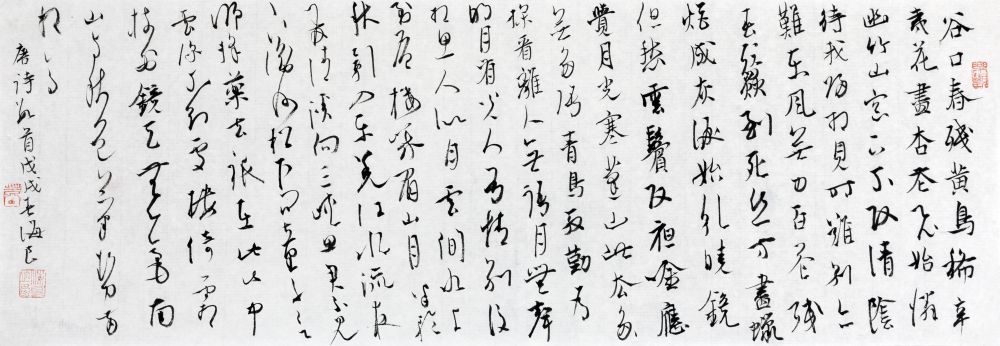 谷口春殘黄鳥稀辛
夷花盡杏花飛始憐
幽竹山窗下不改清陰
待我歸相見時難別亦
難東風無力百花殘
春蠶到死絲方盡蠟
炬成灰淚始乾曉鏡
但愁雲鬢改夜吟應
覺月光寒蓬山此去多
無多路青鳥殷勤為
探看離人無語月無聲
明月有光人有情別後
相思人似月雲間水上
到層樓峨眉山月半輪
秋影入平羌江水流夜
發清溪向三峽思君不見
下渝州松下問童子言
師採藥去祇在此山中
雲深不知處樓倚霜
樹外鏡天無一毫南
山與秋色氣勢兩
相高
唐詩數首戊戌春海民